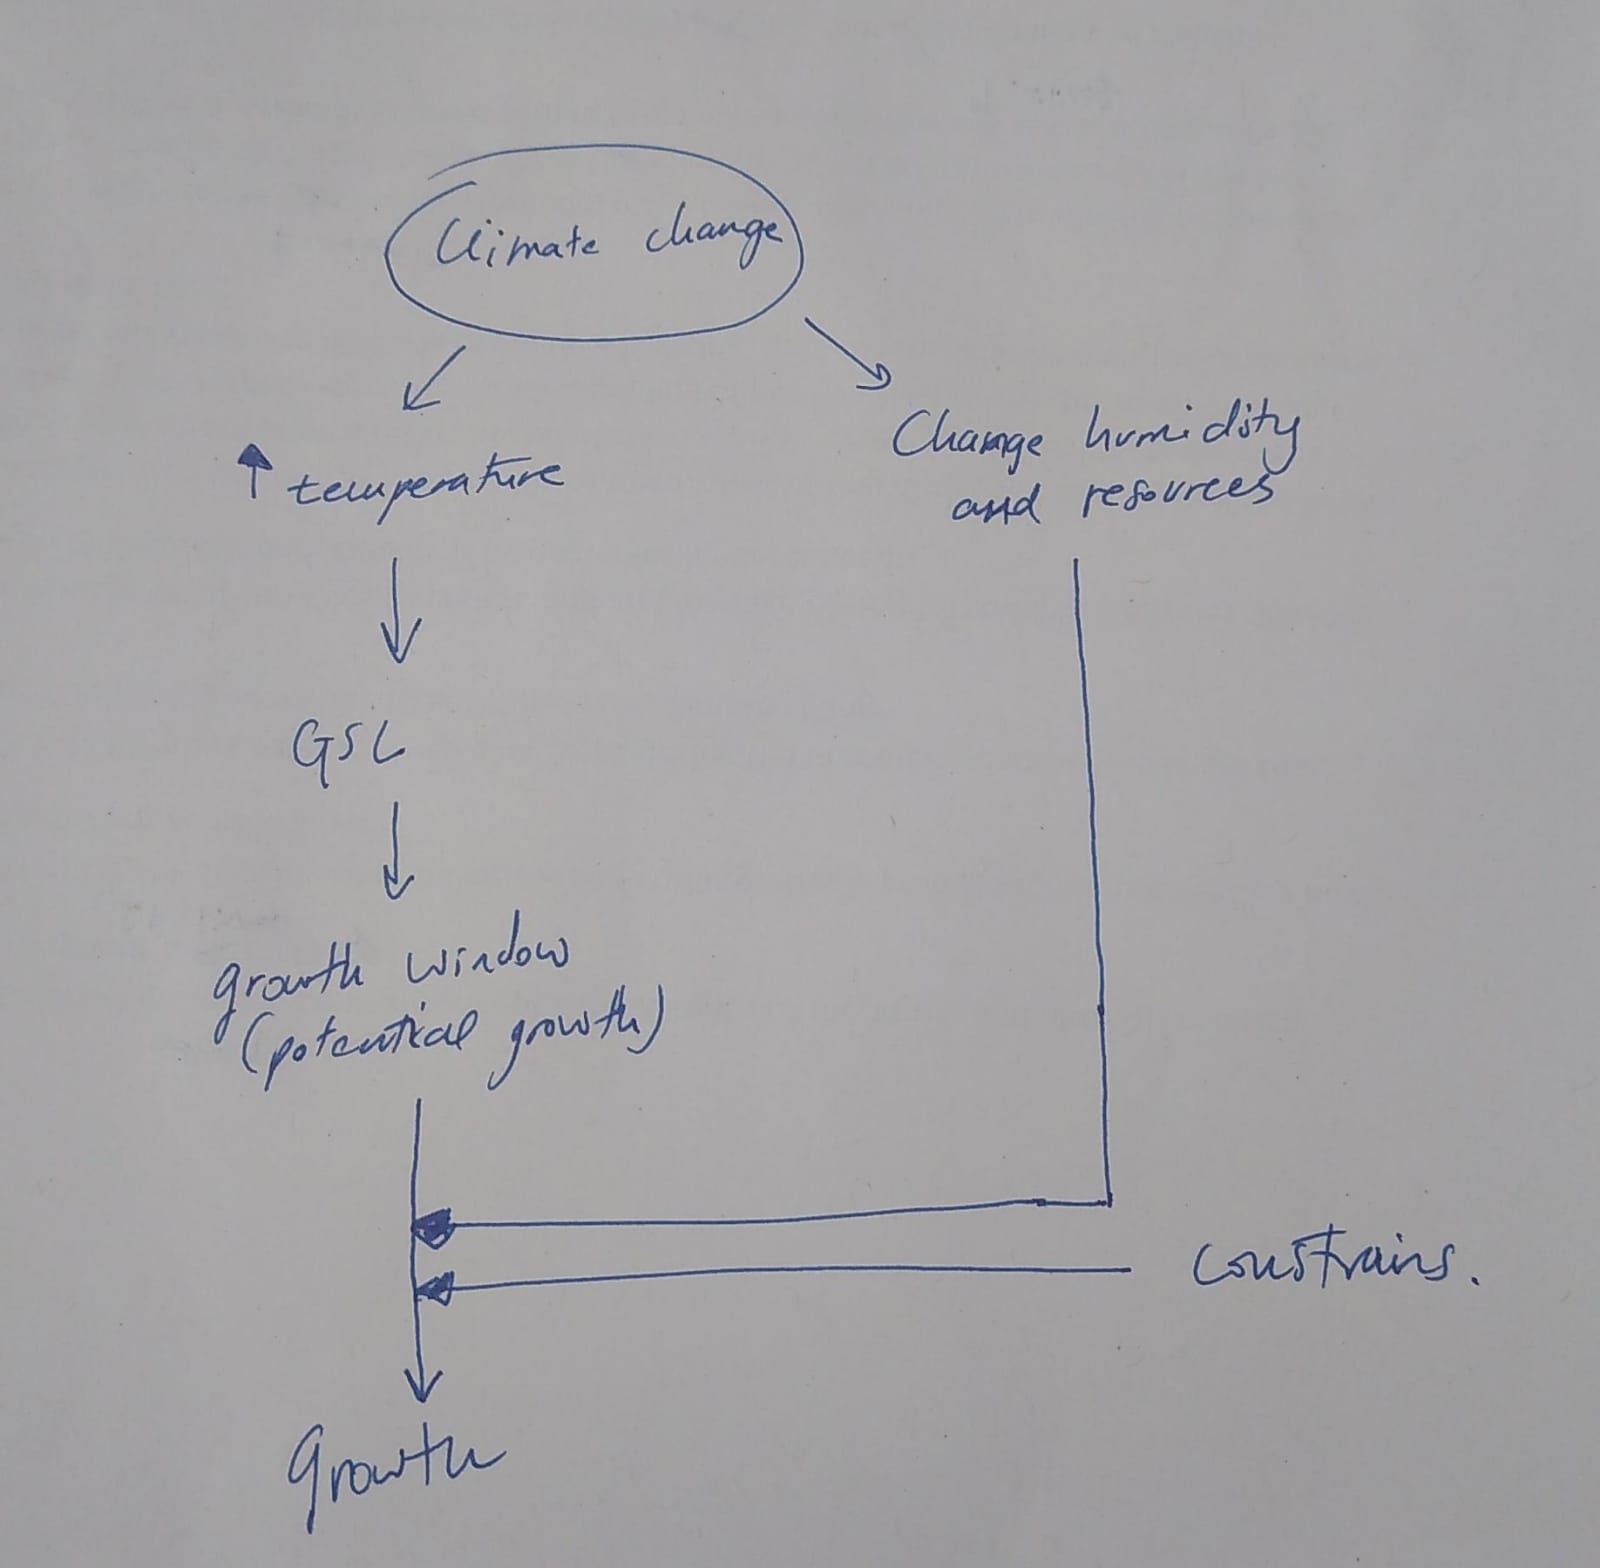 Climate change
↑ temperature
Change humidity
and resources
GSL
growth window
(potential growth)
constrains.
Growth